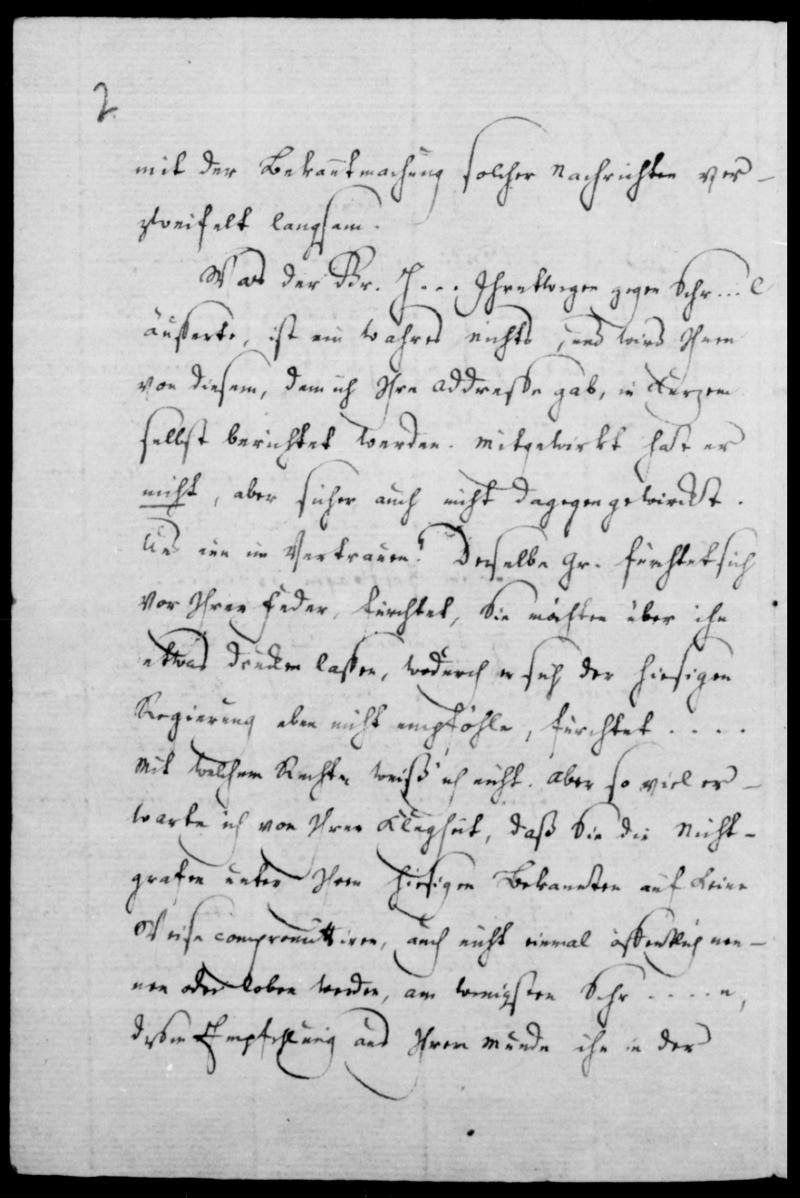 2.
mit der Bekanntmachung solcher Nachrichten ver-
zweifelt langsam.
Was der Gr. H... Ihretwegen gegen Schr...l
äusserte, ist ein wahres nichts, und wird Ihnen
von diesem, dem ich Ihre addresse gab, in kurzem
selbst berichtet werden. Mitgewirkt hat er
nicht, aber sicher auch nicht dagegengewirckt.
Und nun im Vertrauen! Derselbe Gr. fürchtet sich
vor Ihrer Feder, fürchtet, Sie möchten über ihn
etwas drucken lassen, wodurch er sich der hiesigen
Regierung eben nicht empföhle, fürchtet ....
Mit welchem Rechte, weiß ich nicht. Aber so viel er-
warte ich von Ihrer Klugheit, daß Sie die Nicht-
grafen unter Ihren hiesigen Bekannten auf keine
Weise compromittiren, auch nicht einmal öffentlich nen-
nen oder loben werden, am wenigsten Schr.....n,
dessen Empfehlung aus Ihrem Munde ihn in der